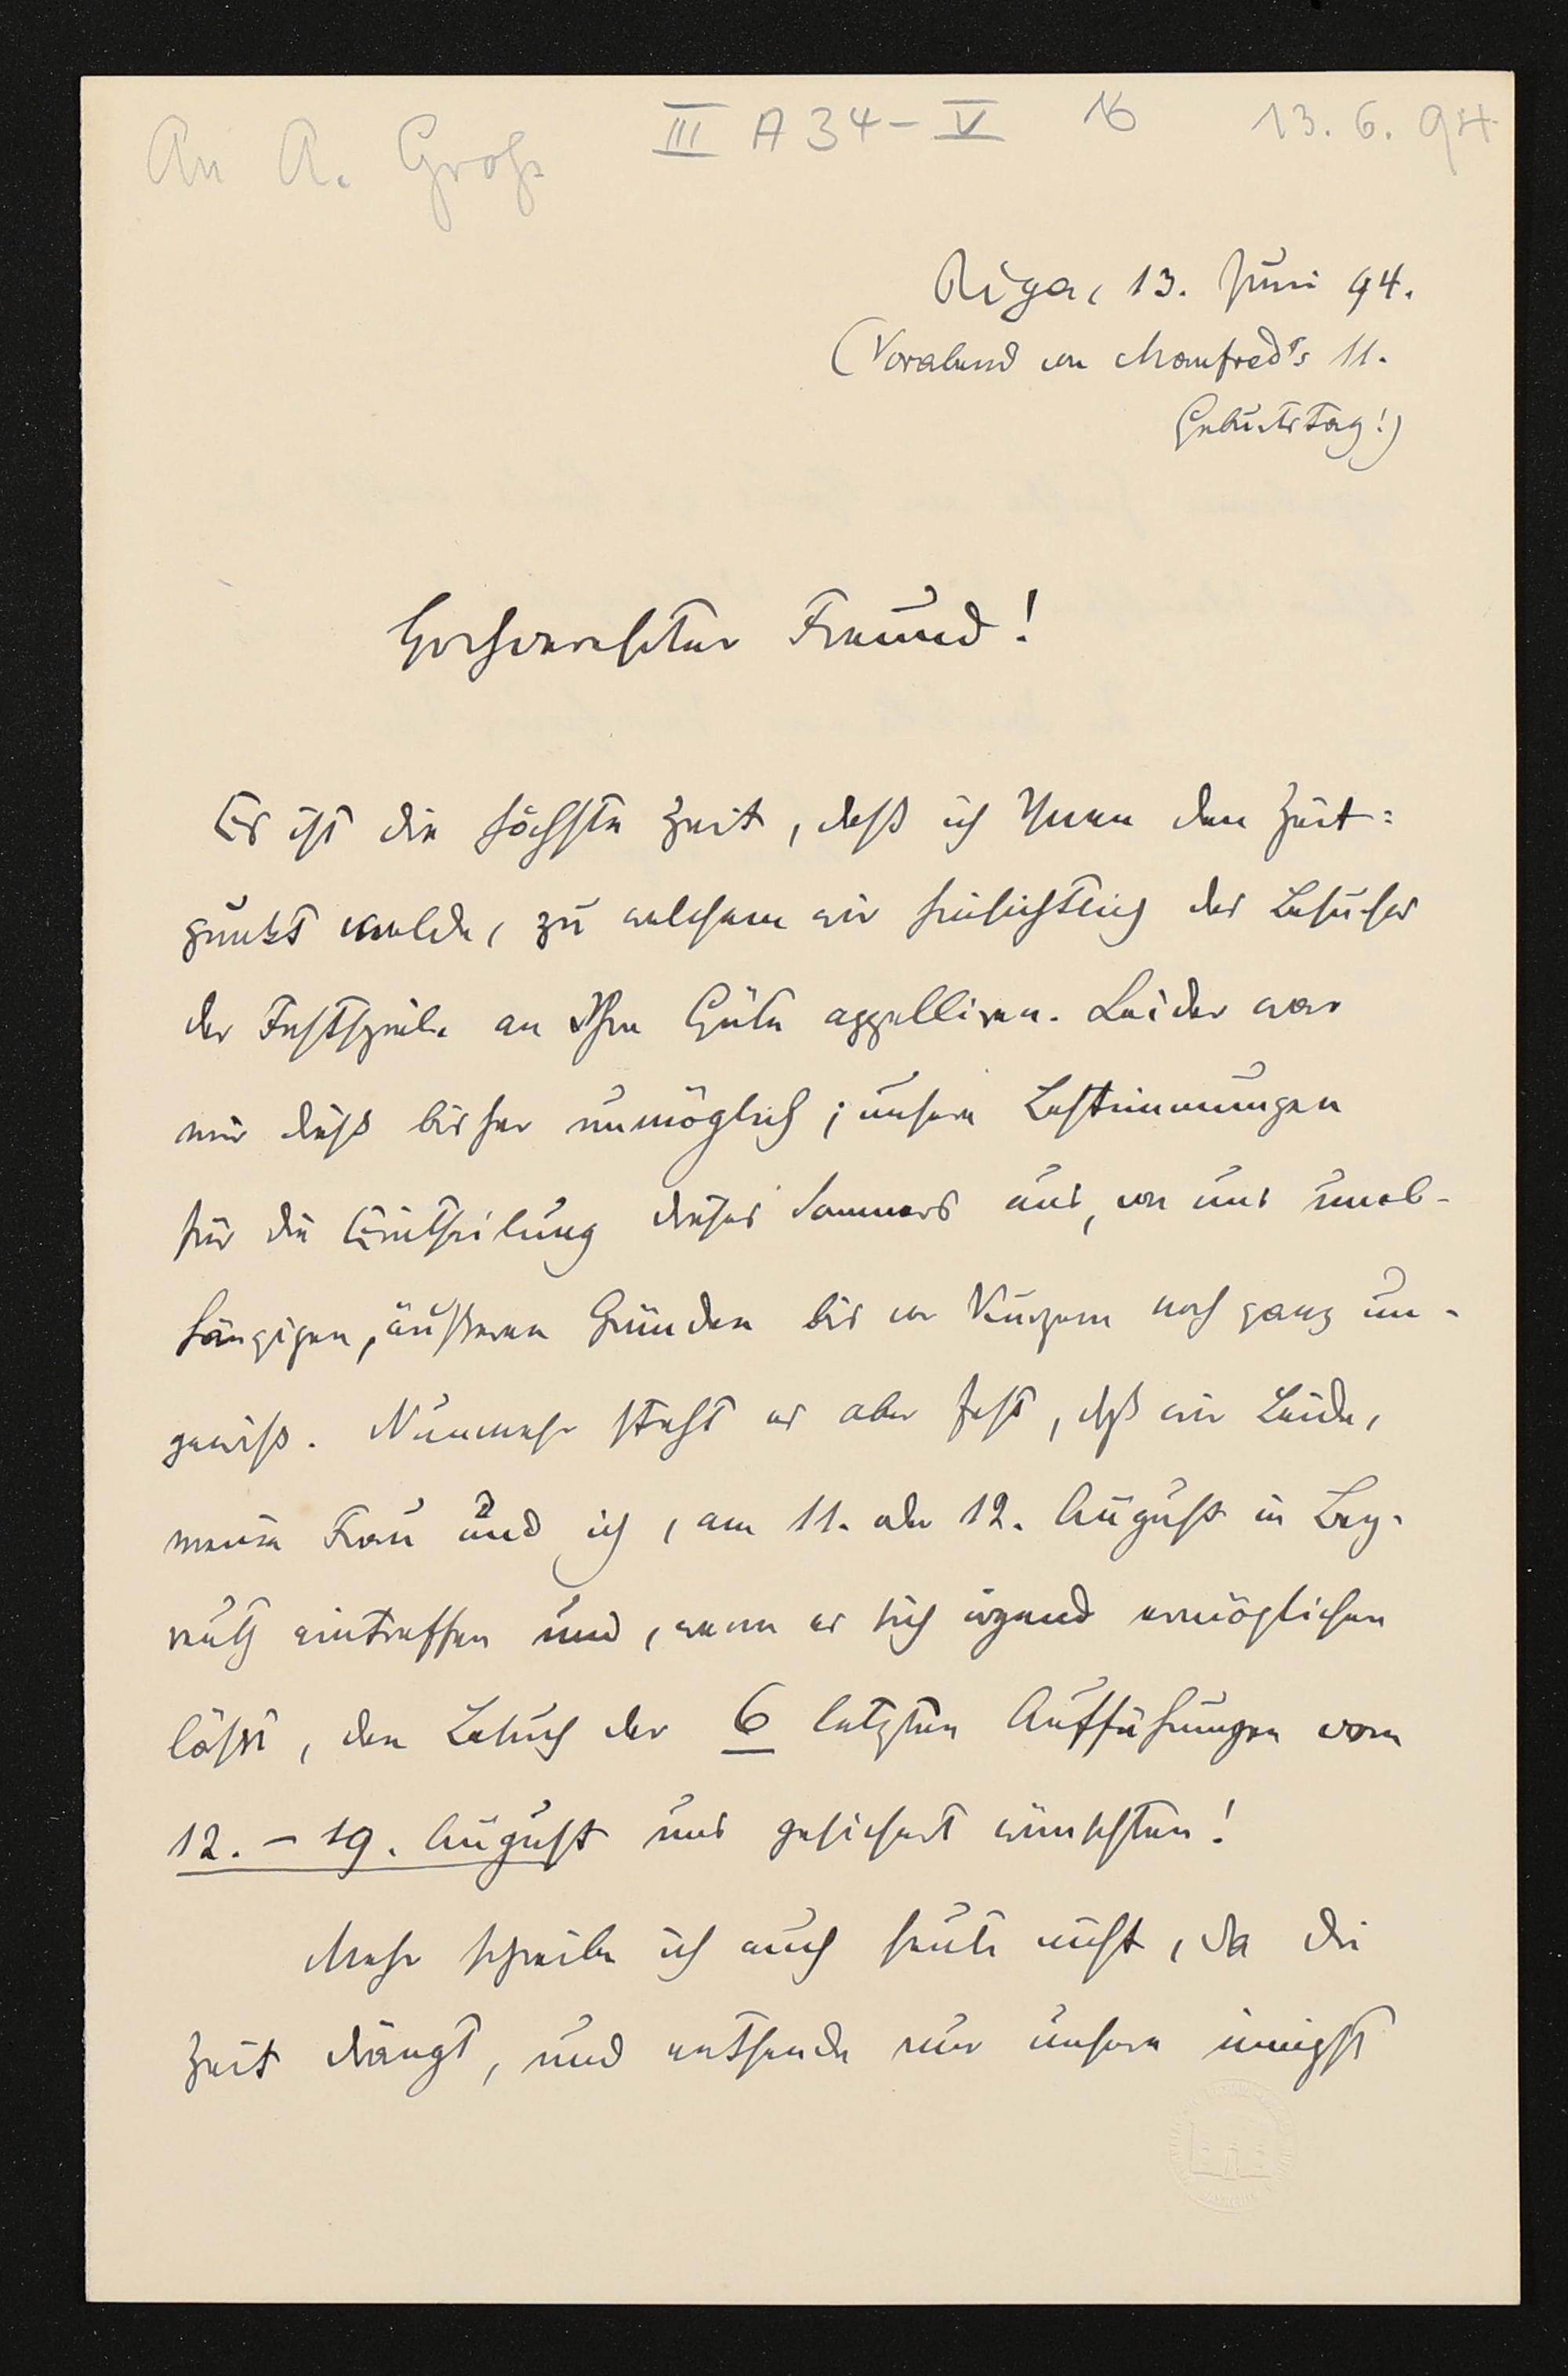 An A. Groß III A 34 – V 16 13. 6. 94
Riga, 13. Juni 94.
(Vorabend von Manfred's 11.
Geburtstag!)
Hochverehrter Freund!
Es ist die höchste Zeit, daß ich Ihnen den Zeit=
punkt melde, zu welchem wir hinsichtlich des Besuches
der Festspiele an Ihre Güte appelliren. Leider war
mir dieß bisher unmöglich; unsere Bestimmungen
für die Eintheilung dieses Sommers aus, von uns unab-
hängigen, äußeren Gründen bis vor Kurzem noch ganz un-
gewiß. Nunmehr steht es aber fest, daß wir Beide,
meine Frau und ich, am 11. oder 12. August in Bay-
reuth eintreffen und, wenn es sich irgend ermöglichen
läßt, den Besuch der 6 letzten Aufführungen vom
12. – 19. August uns gesichert wünschten!
Mehr schreibe ich auch heute nicht, da die
Zeit drängt, und entsende nur unsere innigst